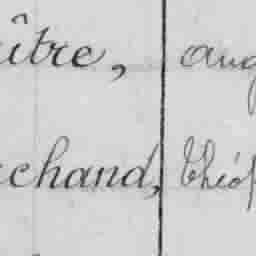 ître, aug
chand, Théop